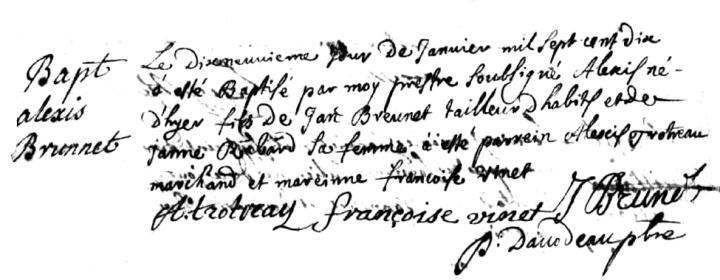 Bapt
alexis
Brunnet
Le dixneuvieme jour de Janvier mil sept cent dix
a esté Baptisé par moy prestre soubsigné Alexis né-
d'hyer fils de Jan Breunet tailleur d'habits et de
Janne Rebard sa femme a esté parrein Alexis trotreau
marchand et mareinne francoise vinet
A. trotreau françoise vinet J Brunet
P. Daudeau ptre